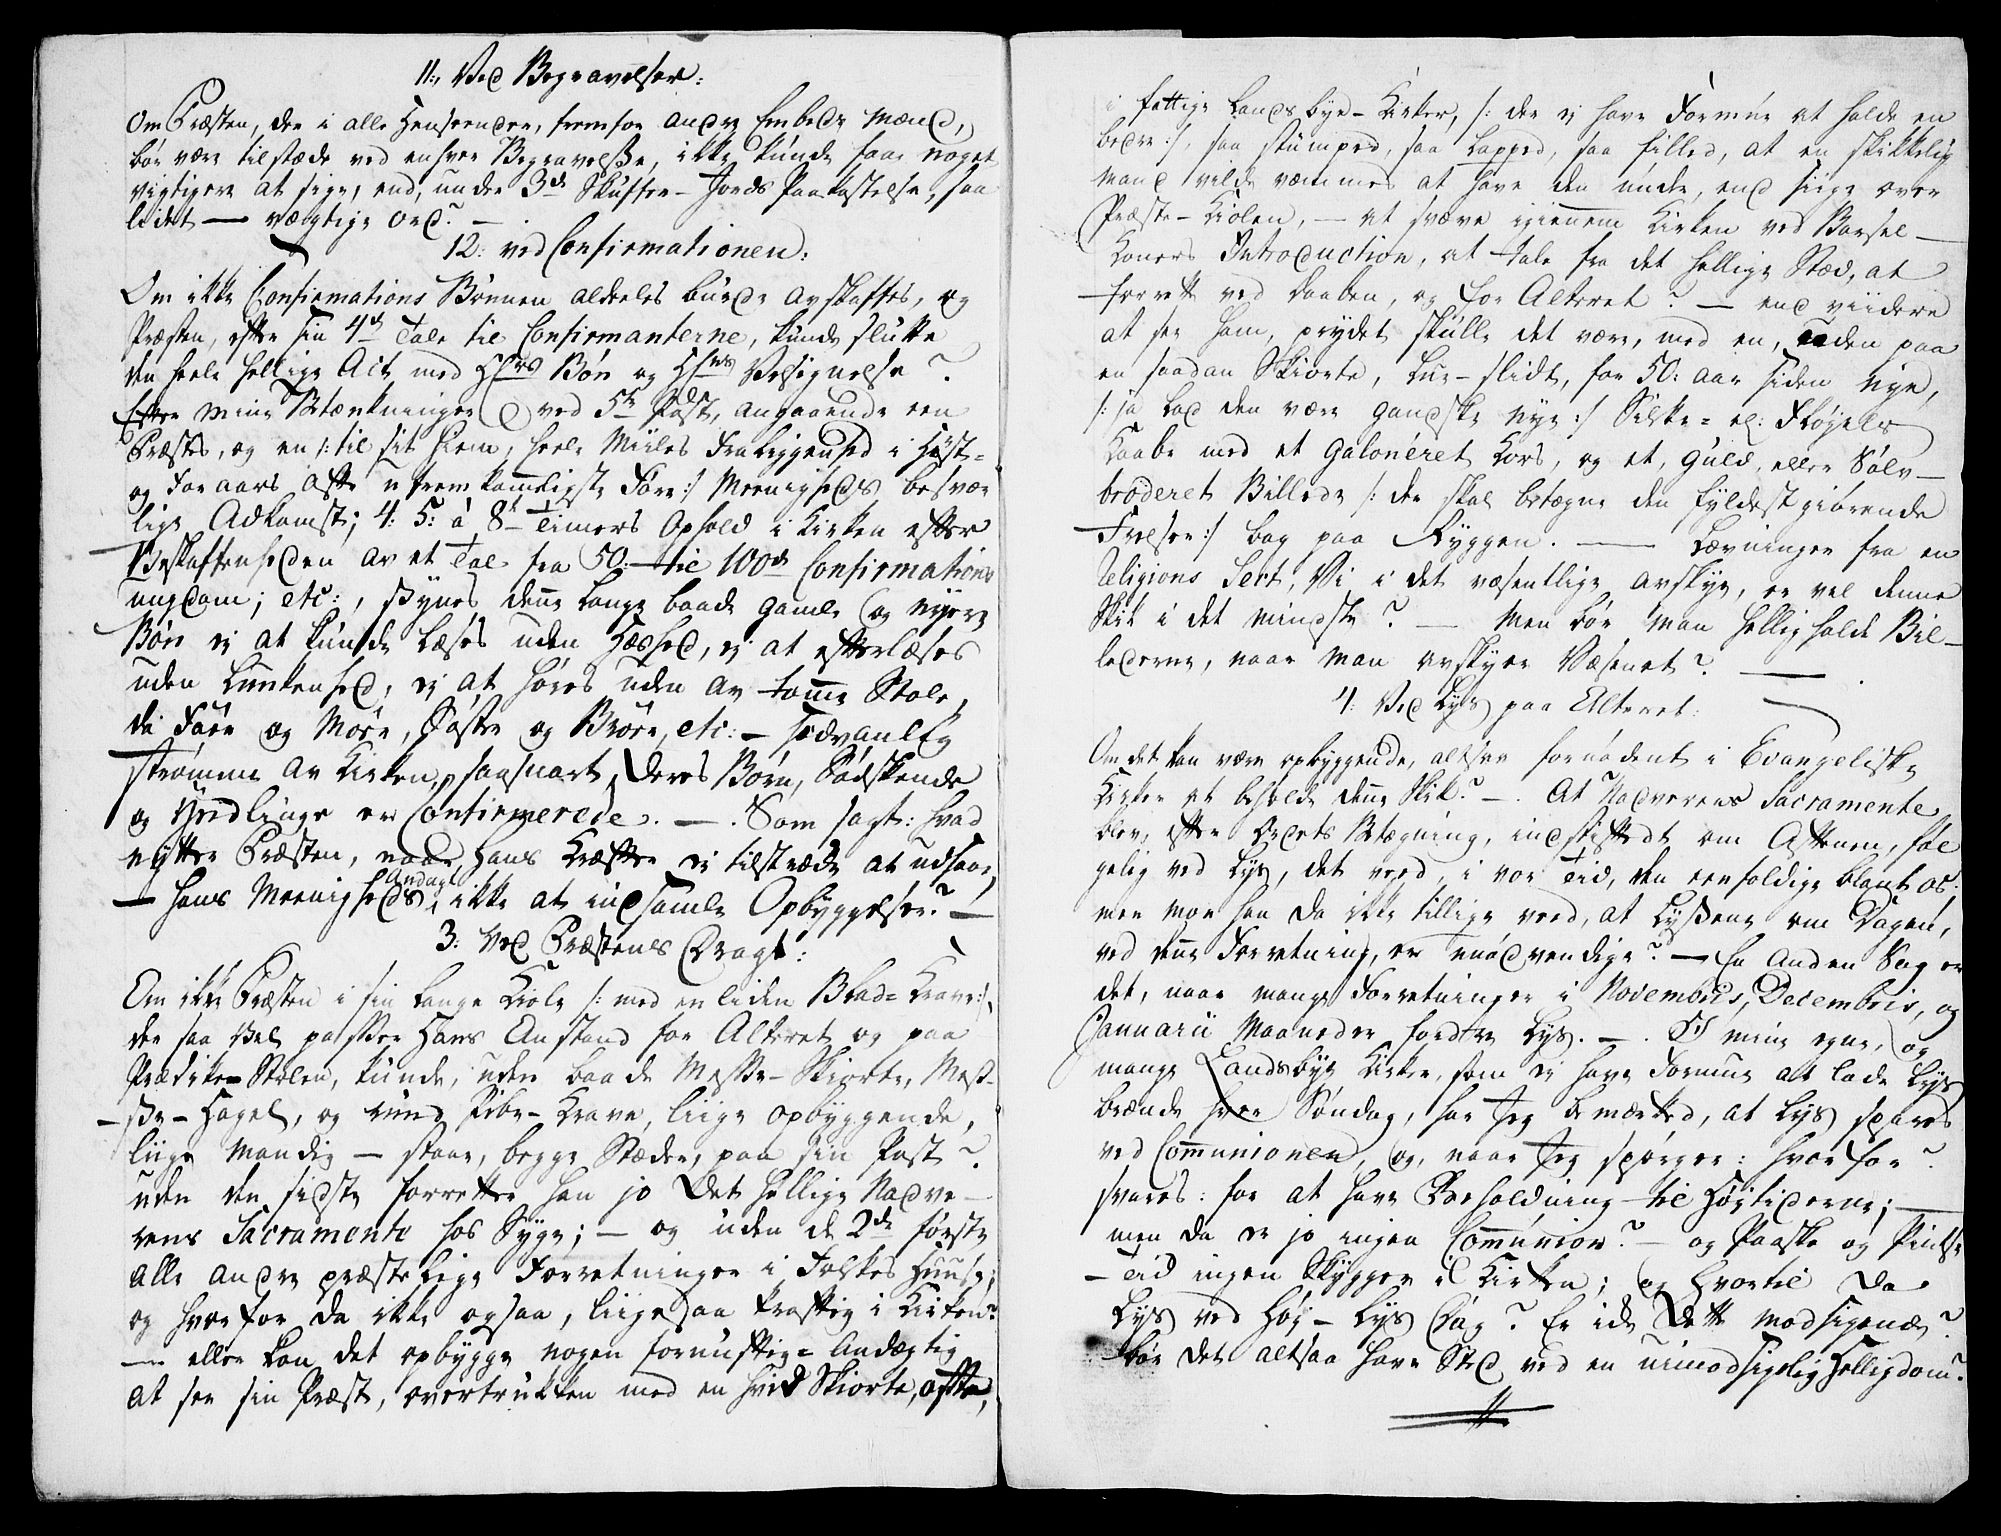 11: Ved Begravelser:
Om Præsten, der i alle Henseender, fremfor andre Embeds Mænd,
bør være tilstæde ved enhver Begravelse, ikke kunde faae noget
vigtigere at sige, end, under 3de Skuffer-Jords Paakastelse, saa
lidet — vægtige Ord? —
12: ved Confirmationen:
Om ikke Confirmations Bønnen aldeeles burde avskaffes, og
Præsten, efter sin 4de Tale til Confirmanterne, kunde slutte
den heele hellige Act med HErrens Bøn og HErrens Velsignelse?
Efter mine Betænkninger ved 5te Post, angaaende een
Præstes, og en /: til sit Hiem, heele Miiles Fraliggenhed i Høst-
og Foraars ofte ufremkommeligste Føre :/ Meenigheds besvær
lige Adkomst; 4: 5: à 8te Timers Ophold i Kirken efter
Beskaffenheden av et Tal fra 50: til 100de Confirmations
ungdom; etc:, synes denne lange baade gamle og nyere
Bøn ei at kunde læses uden Hæshed, ei at efterlæses
uden Lunkenhed, ei at høres uden av tomme Stole,
da Fare og More, Søstre og Brøre, etc: — sædvanlig
strømme av Kirken, saasnart deres Børn, Sødskende
og Yndlinge er Confirmerede. — . Som sagt: hvad
nytter Præsten, naar Hans Kræfter ei tilstræde at udsaae,
— hans Meenigheds Andagt ikke at indsamle Opbyggelser? —
3: Ved Præstens Dragt:
Om ikke Præsten i sin lange Kiole /: med en liden Blad-Krave :/,
der saa vel passer Hans Anstand for Alteret og paa
Prædike-Stolen, kunde, uden baade Messe-Skiorte, Mes-
se-Hagel, og rund Pibe-Krave, liige opbyggende,
liige Mandig — staae, begge Stæder, paa sin Post?
uden den sidste forretter han jo det hellige Nadve-
rens Sacramente hos Syge; — og uden de 2de første
alle andre præstelige Forretninger i Folkes Huuse;
og hvorfor da ikke ogsaa, liigesaa kraftig i Kirken?
— eller kan det opbygge nogen fornuftig-Andægtig
at see sin Præst, overtrukken med en hvid Skiorte, ofte,
i fattige Landsbye-Kirker, /: der ei have Formue at holde en
bedre :/, saa stumped, saa lapped, saa filled, at en skikkelig
Mand vilde væmmes at have den under, end siige over
Præste-Kiolen, — at svæve igiennem Kirken ved Barsel-
Koners Introduction, at tale fra det hellige Stæd, at
forrette ved Daaben, og for Alteret? — end viidere
at see ham, prydet skulle det være, med en, uden paa
en saadan Skiorte, luv-slidt, for 50: aar siden nye,
/: ja lad den være gandske nye :/ Silke- el: Fløyels
Kaabe med et galoneret Kors, og et, Guld, eller Sølv-
broderet Billede /: der skal betegne den fyldestgiørende
Frelser :/ bag paa Ryggen. — Levninger fra en
Religions Sect, Vi i det væsentlige avskye, er vel denne
Skik i det mindste? — Men bør man helligholde Bil-
lederne, naar man avskyer Væsenet? —
4: Ved Lys paa Alteret:
Om det kan være opbyggende, altsaa fornødent i Evangeliske
Kirker at beholde denne Skik? — . At Nadverens Sacramente
blev, efter Ordets Betegning, indstiftet om Aftenen, føl
gelig ved Lys, det veed, i vor Tid, den eenfoldige blant os:
men mon han da ikke tillige veed, at Lysene om Dagen,
ved denne Forretning, er unødvendige? — En anden Sag er
det, naar mange Forretninger i Novembris, Decembris, og
Januarii Maaneder fordre Lys. — . I mine egne, og
mange Landsbye Kirker, som ei have Formue at lade Lys
brænde hver Søndag, har Jeg bemærked, at Lys spares
ved Communionen, og, naar Jeg spørger: hvorfor?
svares: for at have Beholdning til Høytiderne; —
men da er jo ingen Communion? — og Paaske og Pintse
-Tid ingen Skygger i Kirken; og hvortil da
Lys ved Høy-Lys Dag? Er ide Dette modsigende?
bør det altsaa have Sted ved en uimodsigelig Helligdom?